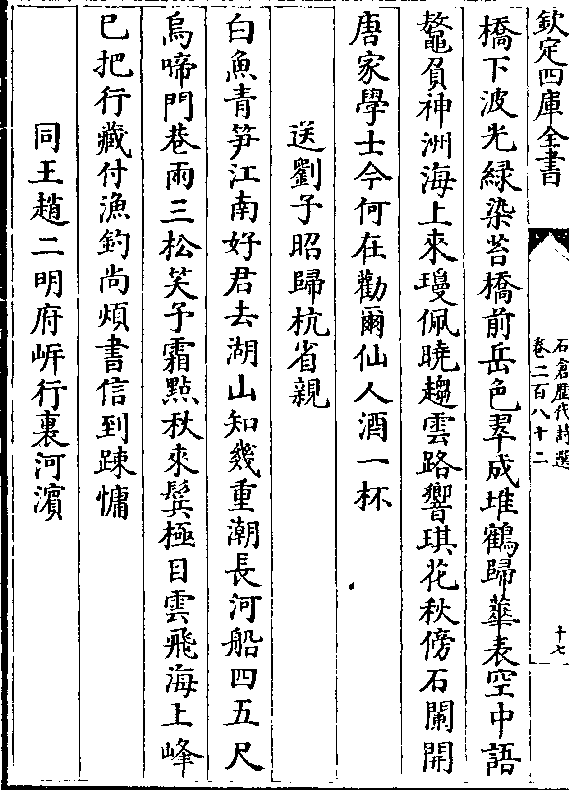 欽定四庫全書
石倉歷代詩選
卷二百八十二
十七
橋下波光緑染苔橋前岳色翠成堆鶴歸華表空中語
鼇負神洲海上來瓊佩曉趨雲路響琪花秋傍石闌開
唐家學士今何在勸爾仙人酒一杯
送劉子昭歸杭省親
白魚青笋江南好君去湖山知幾重潮長河船四五尺
烏啼門巷兩三松笑予霜點秋來鬂極目雲飛海上峰
已把行藏付漁釣尚煩書信到踈慵
同王趙二明府㟁行裏河濱